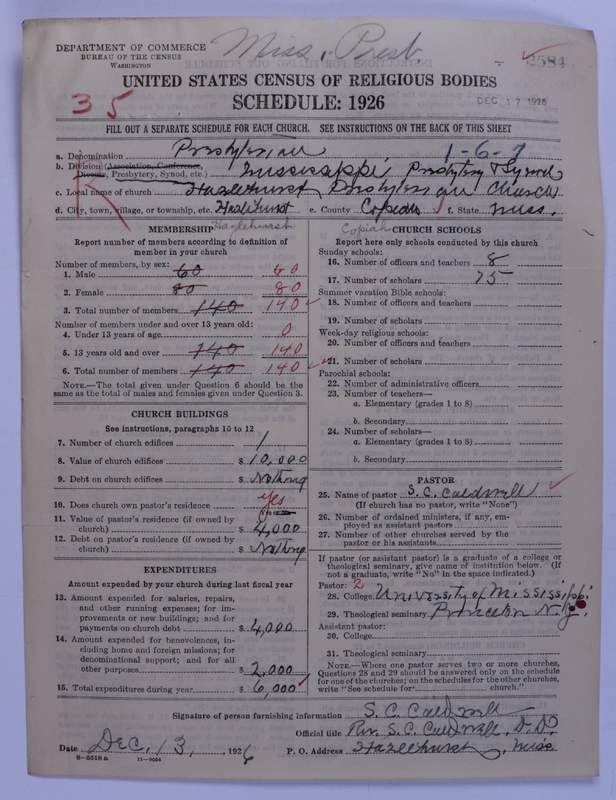 DEPARTMENT OF COMMERCE
BUREAU OF THE CENSUS
WASHINGTON
Miss. Presb
2584
UNITED STATES CENSUS OF RELIGIOUS BODIES
SCHEDULE: 1926
DEC 17 1926
35
FILL OUT A SEPARATE SCHEDULE FOR EACH CHURCH. SEE INSTRUCTIONS ON THE BACK OF THIS SHEET
a. Denomination Presbyterian 1-6-7
b. Division (Association, Conference, Diocese, Presbytery, Synod, etc.) Mississippi Presbytery & Synod
c. Local name of church Hazlehurst Presbyterian Church
d. City, town, village, or township, etc. Hazlehurst e. County Copiah f. State Miss.
Hazlehurst Copiah
MEMBERSHIP
Report number of members according to definition of
member in your church
Number of members, by sex:
1. Male 60 60
2. Female 80 80
3. Total number of members 140 140
Number of members under and over 13 years old:
4. Under 13 years of age 0
5. 13 years old and over 140 140
6. Total number of members 140 140
NOTE.—The total given under Question 6 should be the
same as the total of males and females given under Question 3.
CHURCH BUILDINGS
See instructions, paragraphs 10 to 12
7. Number of church edifices 1
8. Value of church edifices $ 10,000
9. Debt on church edifices $ Nothing
10. Does church own pastor's residence yes
11. Value of pastor's residence (if owned by
church) $ 4,000
12. Debt on pastor's residence (if owned by
church) $ Nothing
EXPENDITURES
Amount expended by your church during last fiscal year
13. Amount expended for salaries, repairs,
and other running expenses; for im-
provements or new buildings; and for
payments on church debt $ 4,000
14. Amount expended for benevolences, in-
cluding home and foreign missions; for
denominational support; and for all
other purposes $ 2,000
15. Total expenditures during year $ 6,000
CHURCH SCHOOLS
Report here only schools conducted by this church
Sunday schools:
16. Number of officers and teachers 8
17. Number of scholars 75
Summer vacation Bible schools:
18. Number of officers and teachers
19. Number of scholars
Week-day religious schools:
20. Number of officers and teachers
21. Number of scholars
Parochial schools:
22. Number of administrative officers
23. Number of teachers—
a. Elementary (grades 1 to 8)
b. Secondary
24. Number of scholars—
a. Elementary (grades 1 to 8)
b. Secondary
PASTOR
25. Name of pastor S. C. Caldwell
(If church has no pastor, write "None")
26. Number of ordained ministers, if any, em-
ployed as assistant pastors
27. Number of other churches served by the
pastor or his assistants
If pastor (or assistant pastor) is a graduate of a college or
theological seminary, give name of institution below. (If
not a graduate, write "No" in the space indicated.)
Pastor: 2
28. College University of Mississippi
29. Theological seminary Princeton N. J.
Assistant pastor:
30. College
31. Theological seminary
NOTE.—Where one pastor serves two or more churches,
Questions 28 and 29 should be answered only on the schedule
for one of the churches; on the schedules for the other churches,
write "See schedule for church."
Signature of person furnishing information S. C. Caldwell
Official title Rev. S. C. Caldwell, D. D.
Date Dec. 13, 1926 P. O. Address Hazlehurst, Miss
8-5518a 11-9034